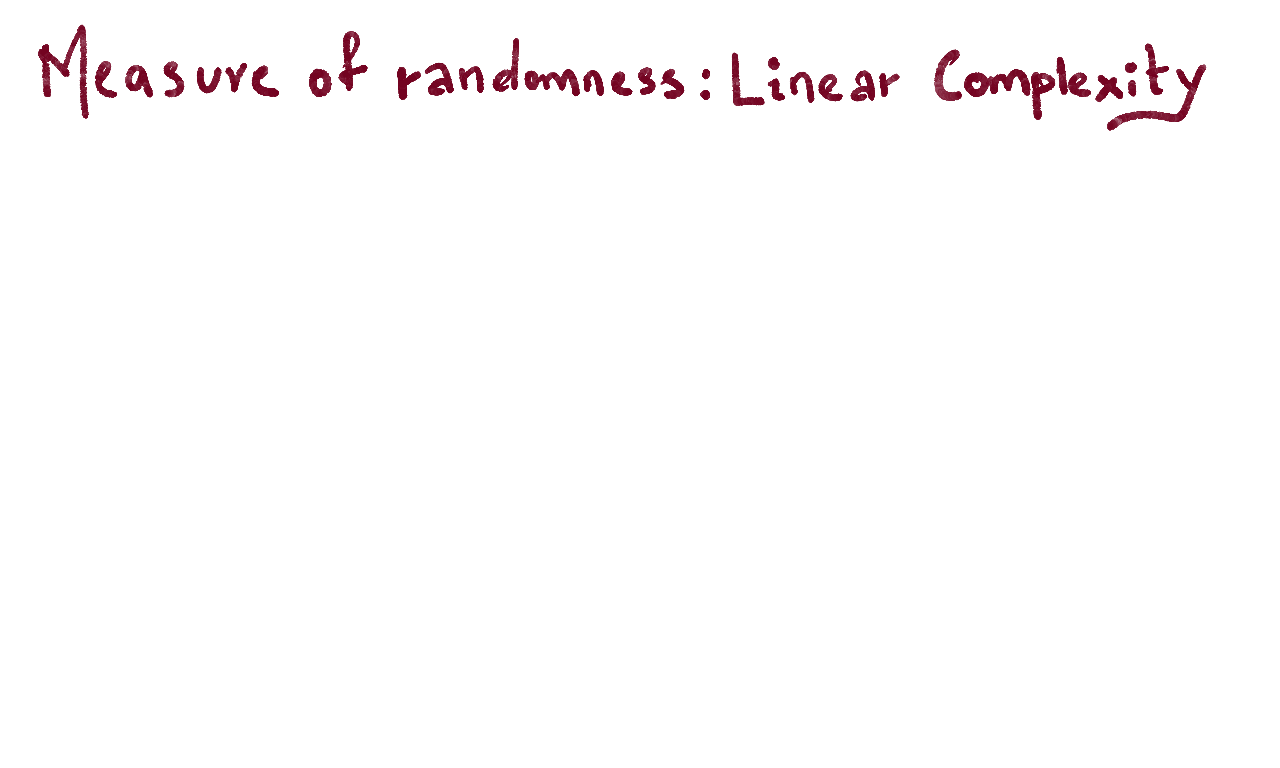 Measure of randomness: Linear Complexity